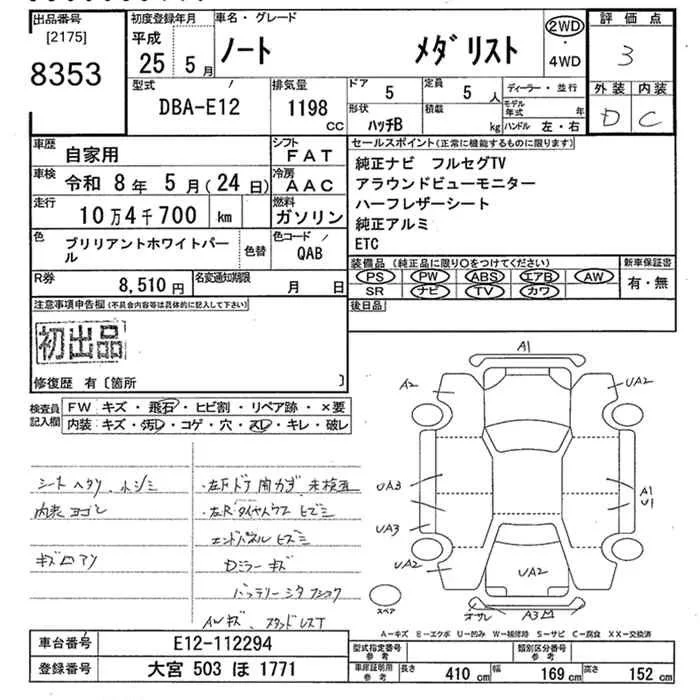 出品番号 初度登録年月 車名・グレード 評価点
[2175] 平成
8353 25 5月 ノート メダリスト 2WD・4WD 3
型式 排気量 ドア 5 定員 5人 ディーラー・並行 外装 内装
DBA-E12 1198cc 形状 ハッチB 積載 kg モデル年式 年 ハンドル 左・右 D C
車歴 自家用 シフト FAT セールスポイント(正常に機能するものに限ります)
車検 令和 8年 5月(24日) 冷房 AAC 純正ナビ フルセグTV
アラウンドビューモニター
走行 10万4千700 km 燃料 ガソリン ハーフレザーシート
純正アルミ
色 ブリリアントホワイトパール 色替 色コード QAB ETC
装備品(純正品に限り〇をつけてください) 新車保証書
PS PW ABS エアB AW 有・無
SR ナビ TV カワ
R券 8,510円 名変通知期限 月 日
注意事項申告欄(不具合内容等は具体的に記入して下さい) 後日品
初出品
修復歴 有〔箇所 〕
検査員記入欄 FW キズ・飛石・ヒビ割・リペア跡・×要
内装:キズ・汚レ・コゲ・穴・スレ・キレ・破レ
シートヘタリ、
内装ヨゴレ
エンドパネルヒズミ
Dミラーキズ
A1
A2 UA2
UA3 A1
U1
UA3
UA2 UA2 UA2
スペア A3
A-キズ E-エクボ U-凹み W-補修跡 S-サビ C-腐食 XX-交換済
車台番号 E12-112294 型式指定番号 参考 類別区分番号 参考
登録番号 大宮 503 ほ 1771 車庫証明用 参考 長さ 410cm 幅 169cm 高さ 152cm